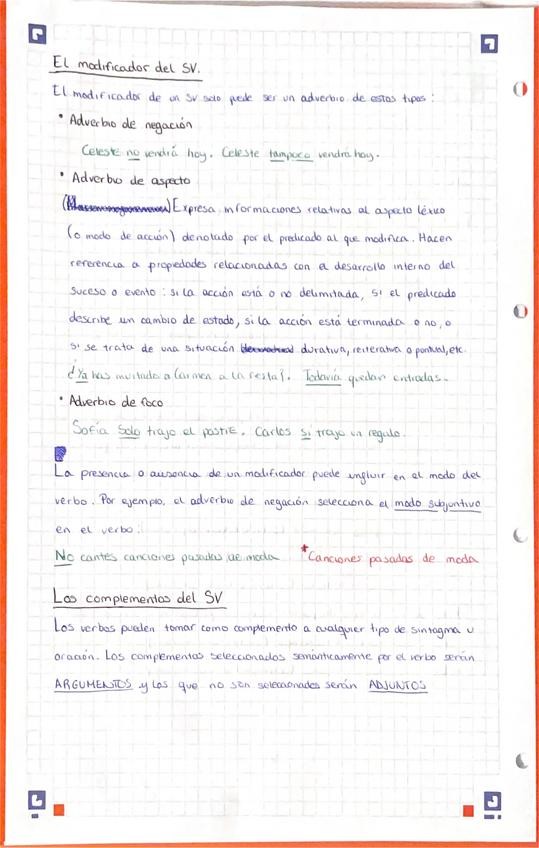 El modificador del SV.
El modificador de un SV solo puede ser un adverbio de estos tipos:
• Adverbio de negación
Celeste no vendrá hoy. Celeste tampoco vendrá hoy.
• Adverbio de aspecto
Expresa informaciones relativas al aspecto léxico
(o modo de acción) denotado por el predicado al que modifica. Hacen
referencia a propiedades relacionadas con el desarrollo interno del
suceso o evento: si la acción está o no delimitada, si el predicado
describe un cambio de estado, si la acción está terminada o no, o
si se trata de una situación durativa, reiterativa o puntual, etc.
¿Ya has invitado a Carmen a la fiesta?. Todavía quedan entradas.
• Adverbio de foco
Sofía solo trajo el postre. Carlos sí trajo un regalo.
La presencia o ausencia de un modificador puede influir en el modo del
verbo. Por ejemplo, el adverbio de negación selecciona el modo subjuntivo
en el verbo.
No cantes canciones pasadas de moda *Canciones pasadas de moda
Los complementos del SV
Los verbos pueden tomar como complemento a cualquier tipo de sintagma u
oración. Los complementos seleccionados semánticamente por el verbo serán
ARGUMENTOS y los que no son seleccionados serán ADJUNTOS